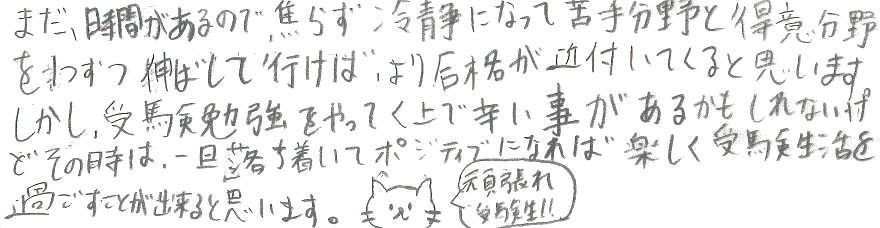 まだ、時間があるので、焦らず冷静になって苦手分野と得意分野
をわずつ伸ばして行けば、より合格が近付いてくると思います
しかし、受験勉強をやってく上で辛い事があるかもしれないけ
どその時は、一旦落ち着いてポジティブになれば楽しく受験生活を
過ごすことが出来ると思います。
頑張れ
受験生!!